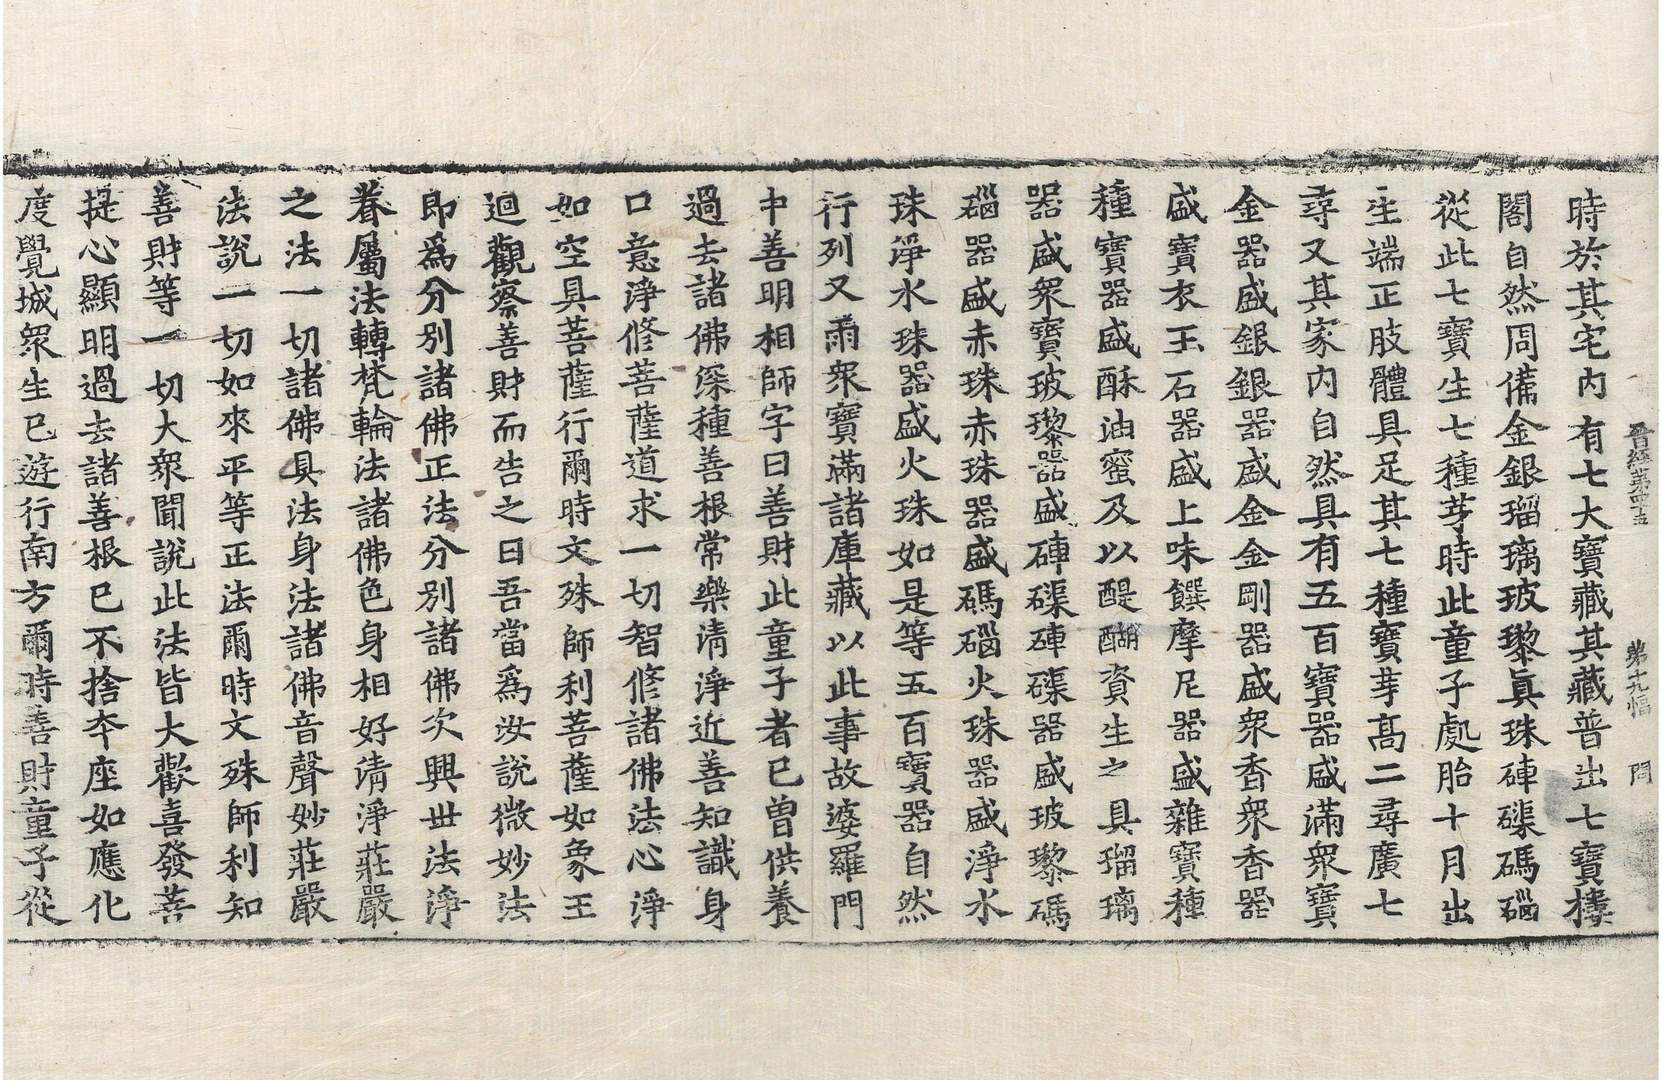 晉經第四十五　第十九幅　問
時於其宅内有七大寶藏其藏普出七寶樓
閣自然周備金銀瑠璃玻瓈眞珠硨磲碼碯
從此七寶生七種芽時此童子處胎十月出
生端正肢體具足其七種寶芽髙二尋廣七
尋又其家内自然具有五百寶器盛滿衆寶
金器盛銀銀器盛金金剛器盛衆香衆香器
盛寶衣玉石器盛上味饌摩尼器盛雜寶種
種寶器盛酥油蜜及以醍醐資生之具瑠璃
器盛衆寶玻瓈器盛硨磲硨磲器盛玻瓈碼
碯器盛赤珠赤珠器盛碼碯火珠器盛淨水
珠淨水珠器盛火珠如是等五百寶器自然
行列又雨衆寶滿諸庫藏以此事故婆羅門
中善明相師字曰善財此童子者已曽供養
過去諸佛深種善根常樂清淨近善知識身
口意淨修菩薩道求一切智修諸佛法心淨
如空具菩薩行爾時文殊師利菩薩如象王
迴觀察善財而告之曰吾當爲汝說微妙法
即爲分別諸佛正法分別諸佛次興世法淨
眷屬法轉梵輪法諸佛色身相好清淨莊嚴
之法一切諸佛具法身法諸佛音聲妙莊嚴
法說一切如來平等正法爾時文殊師利知
善財等一切大衆聞說此法皆大歡喜發菩
提心顯明過去諸善根已不捨夲座如應化
度覺城衆生已遊行南方爾時善財童子從